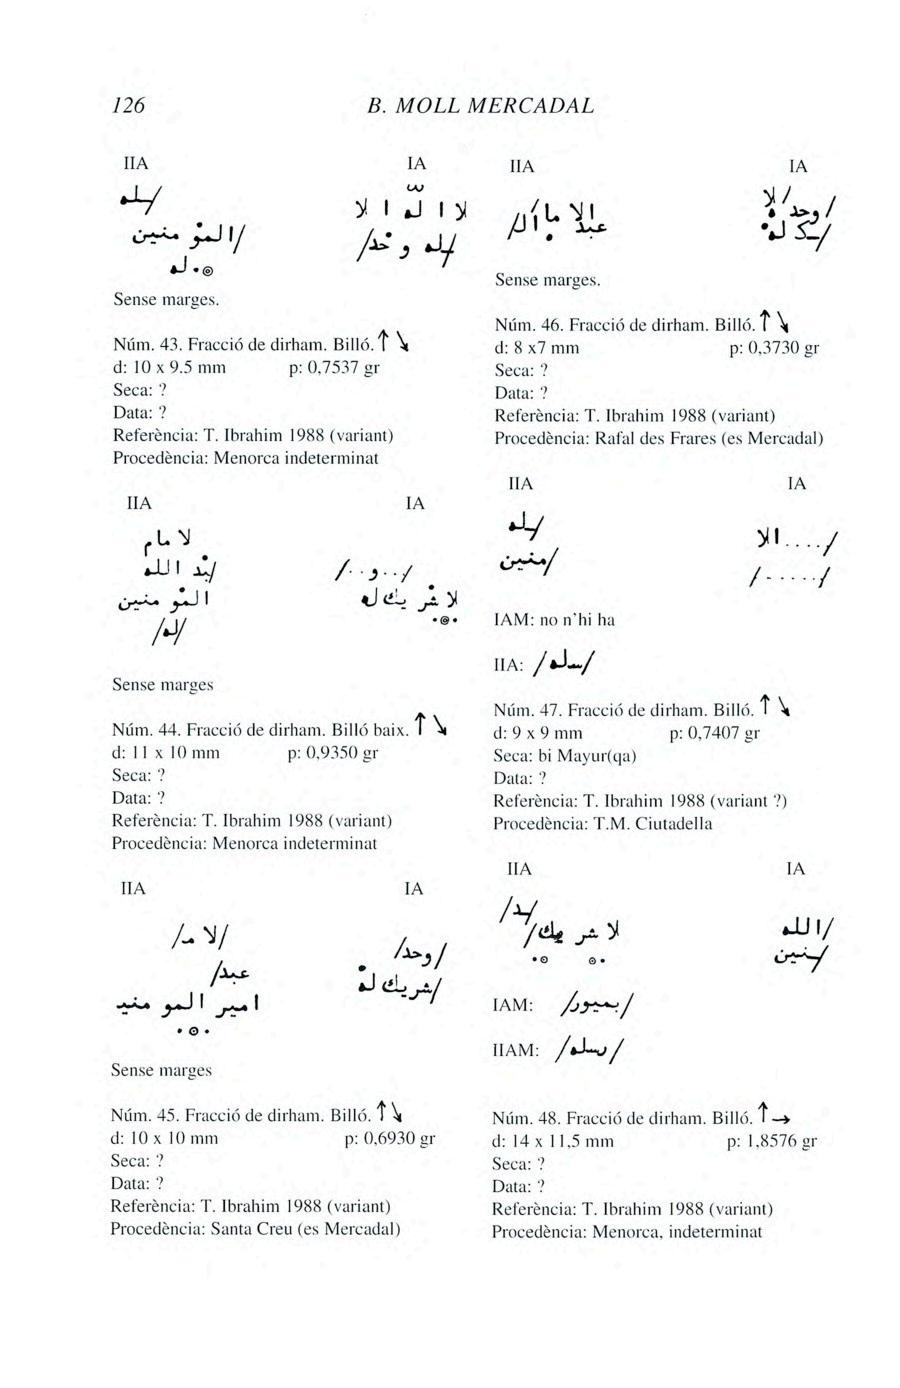 126
B. MOLL MERCADAL
IIA IA
/ىله
/المؤ منين
له
لا ا له ا لا
/لله و حد/
Sense marges.
Núm. 43. Fracció de dirham. Billó. ↑ ↘
d: 10 x 9.5 mm p: 0,7537 gr
Seca: ?
Data: ?
Referència: T. Ibrahim 1988 (variant)
Procedència: Menorca indeterminat
IIA IA
لا مام
/بد الله
المؤ منين
/له/
/. .و. ./
لا شر يك له
Sense marges
Núm. 44. Fracció de dirham. Billó baix. ↑ ↘
d: 11 x 10 mm p: 0,9350 gr
Seca: ?
Data: ?
Referència: T. Ibrahim 1988 (variant)
Procedència: Menorca indeterminat
IIA IA
/لا مـ/
عبد/
امير المو منيـ
/وحد/
/شريك له
Sense marges
Núm. 45. Fracció de dirham. Billó. ↑ ↘
d: 10 x 10 mm p: 0,6930 gr
Seca: ?
Data: ?
Referència: T. Ibrahim 1988 (variant)
Procedència: Santa Creu (es Mercadal)
IIA IA
/وحد/ لا
/ـك له
Sense marges.
Núm. 46. Fracció de dirham. Billó. ↑ ↘
d: 8 x7 mm p: 0,3730 gr
Seca: ?
Data: ?
Referència: T. Ibrahim 1988 (variant)
Procedència: Rafal des Frares (es Mercadal)
IIA IA
/ىله
/منين
/. . . . الا
/. . . . ./
IAM: no n'hi ha
IIA: /سله/
Núm. 47. Fracció de dirham. Billó. ↑ ↘
d: 9 x 9 mm p: 0,7407 gr
Seca: bi Mayur(qa)
Data: ?
Referència: T. Ibrahim 1988 (variant ?)
Procedència: T.M. Ciutadella
IIA IA
/ـبد/
لا شر يك/
/الله
/ـنين
IAM: /بميور/
IIAM: /رسله/
Núm. 48. Fracció de dirham. Billó. ↑ →
d: 14 x 11,5 mm p: 1,8576 gr
Seca: ?
Data: ?
Referència: T. Ibrahim 1988 (variant)
Procedència: Menorca, indeterminat